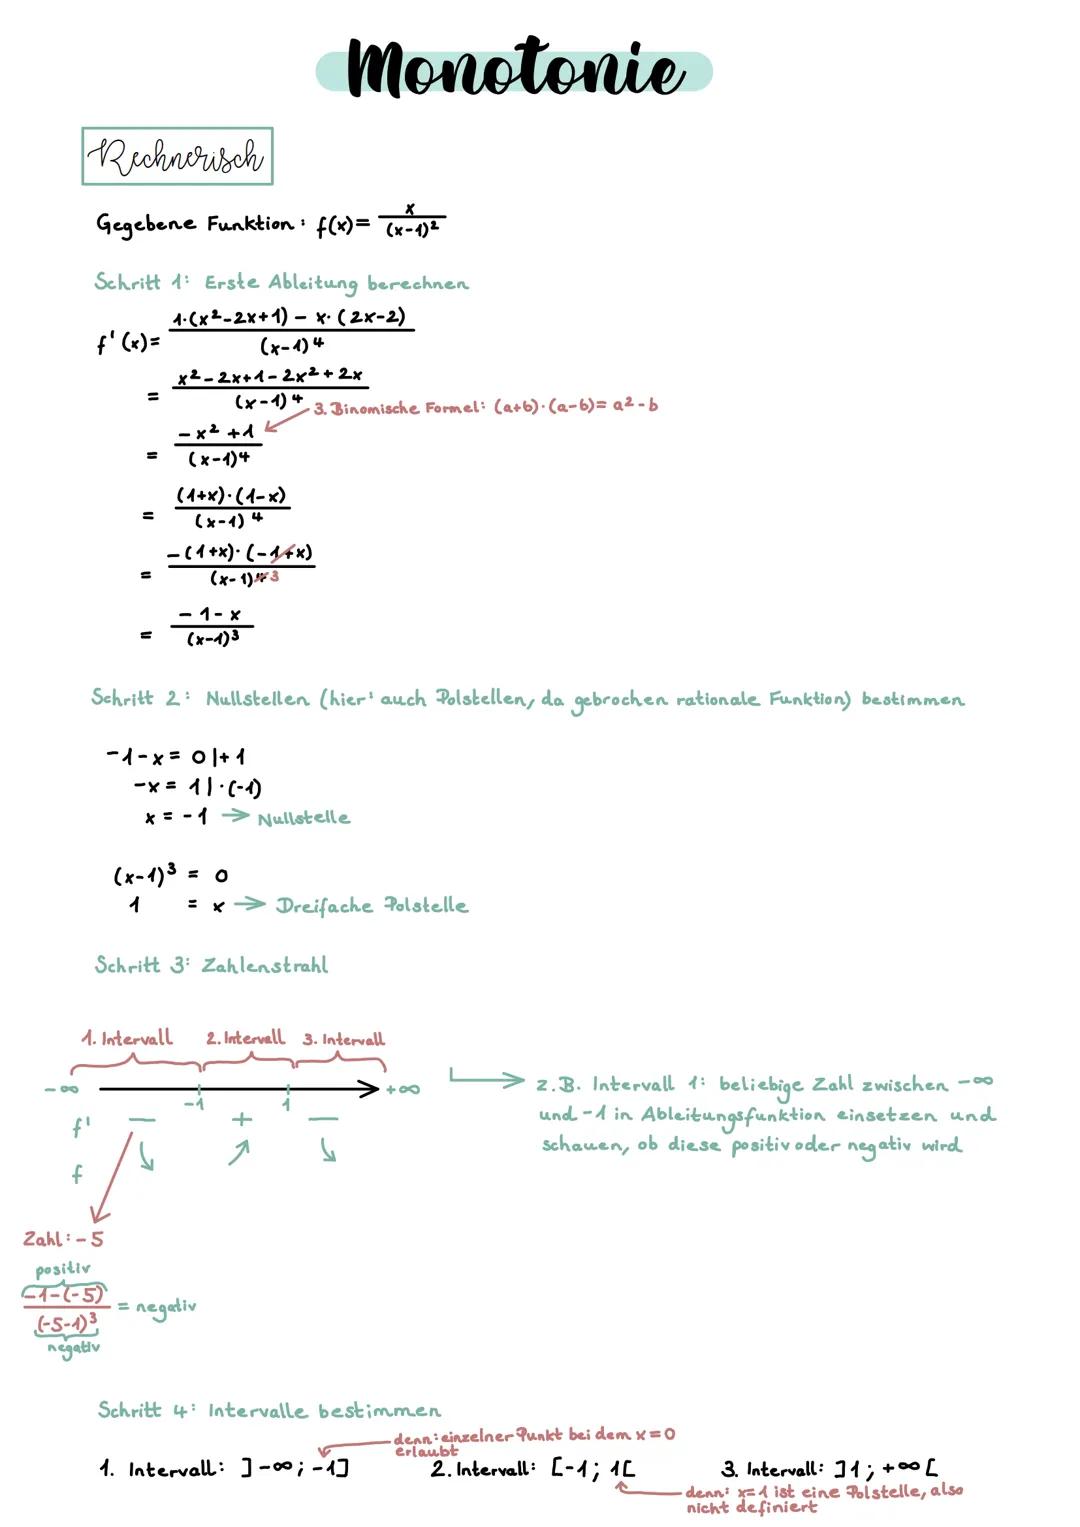 Monotonie
Rechnerisch
Gegebene Funktion: f(x)= x/(x-1)²
Schritt 1: Erste Ableitung berechnen
f'(x)= (1·(x²-2x+1) - x·(2x-2))/(x-1)⁴
= (x²-2x+1-2x²+2x)/(x-1)⁴
3. Binomische Formel: (a+b)·(a-b)= a²-b
= (-x²+1)/(x-1)⁴
= ((1+x)·(1-x))/(x-1)⁴
= (-(1+x)·(-1+x))/(x-1)⁴ 3
= (-1-x)/(x-1)³
Schritt 2: Nullstellen (hier: auch Polstellen, da gebrochen rationale Funktion) bestimmen
-1-x = 0 |+1
-x = 1 |·(-1)
x = -1 → Nullstelle
(x-1)³ = 0
1 = x → Dreifache Polstelle
Schritt 3: Zahlenstrahl
1. Intervall 2. Intervall 3. Intervall
-∞ +∞
-1 1
f' — + —
f ↘ ↗ ↘
z.B. Intervall 1: beliebige Zahl zwischen -∞
und -1 in Ableitungsfunktion einsetzen und
schauen, ob diese positiv oder negativ wird
Zahl: -5
positiv
(-1-(-5))/(-5-1)³ = negativ
negativ
Schritt 4: Intervalle bestimmen
denn: einzelner Punkt bei dem x=0
erlaubt
1. Intervall: ]-∞; -1] 2. Intervall: [-1; 1[ 3. Intervall: ]1; +∞[
denn: x=1 ist eine Polstelle, also
nicht definiert